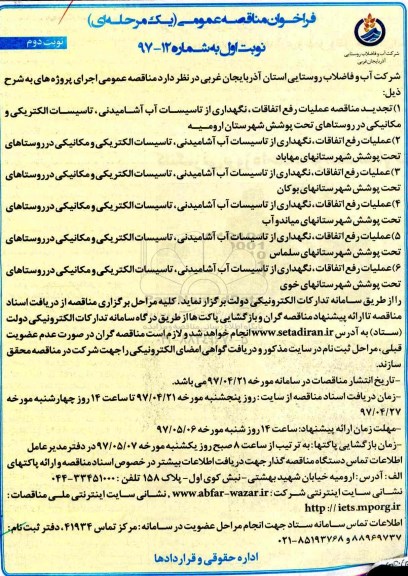 فراخوان مناقصه عمومی (یک مرحله‌ای)
نوبت اول به شماره ۱۲-۹۷
نوبت دوم
شرکت آب و فاضلاب روستایی
آذربایجان غربی
شرکت آب و فاضلاب روستایی استان آذربایجان غربی در نظر دارد مناقصه عمومی اجرای پروژه های به شرح
ذیل:
۱) تجدید مناقصه عملیات رفع اتفاقات، نگهداری از تاسیسات آب آشامیدنی، تاسیسات الکتریکی و
مکانیکی در روستاهای تحت پوشش شهرستان ارومیه
۲) عملیات رفع اتفاقات، نگهداری از تاسیسات آب آشامیدنی، تاسیسات الکتریکی و مکانیکی در روستاهای
تحت پوشش شهرستانهای مهاباد
۳) عملیات رفع اتفاقات، نگهداری از تاسیسات آب آشامیدنی، تاسیسات الکتریکی و مکانیکی در روستاهای
تحت پوشش شهرستانهای بوکان
۴) عملیات رفع اتفاقات، نگهداری از تاسیسات آب آشامیدنی، تاسیسات الکتریکی و مکانیکی در روستاهای
تحت پوشش شهرستانهای میاندوآب
۵) عملیات رفع اتفاقات، نگهداری از تاسیسات آب آشامیدنی، تاسیسات الکتریکی و مکانیکی در روستاهای
تحت پوشش شهرستانهای سلماس
۶) عملیات رفع اتفاقات، نگهداری از تاسیسات آب آشامیدنی، تاسیسات الکتریکی و مکانیکی در روستاهای
تحت پوشش شهرستانهای خوی
را از طریق سامانه تدارکات الکترونیکی دولت برگزار نماید. کلیه مراحل برگزاری مناقصه از دریافت اسناد
مناقصه تا ارائه پیشنهاد مناقصه گران و بازگشایی پاکت ها از طریق درگاه سامانه تدارکات الکترونیکی دولت
(ستاد) به آدرس www.setadiran.ir انجام خواهد شد و لازم است مناقصه گران در صورت عدم عضویت
قبلی، مراحل ثبت نام در سایت مذکور و دریافت گواهی امضای الکترونیکی را جهت شرکت در مناقصه محقق
سازند.
-تاریخ انتشار مناقصات در سامانه مورخه ۹۷/۰۴/۲۱ می باشد.
-زمان دریافت اسناد مناقصه از سایت: روز پنجشنبه مورخه ۹۷/۰۴/۲۱ تا ساعت ۱۴ روز چهارشنبه مورخه
۹۷/۰۴/۲۷
-مهلت زمان ارائه پیشنهاد: ساعت ۱۴ روز شنبه مورخه ۹۷/۰۵/۰۶
-زمان بازگشایی پاکتها: به ترتیب از ساعت ۸ صبح روز یکشنبه مورخه ۹۷/۰۵/۰۷ در دفتر مدیر عامل
اطلاعات تماس دستگاه مناقصه گذار جهت دریافت اطلاعات بیشتر در خصوص اسناد مناقصه و ارائه پاکتهای
الف: آدرس: ارومیه خیابان شهید بهشتی - نبش کوی اول - پلاک ۱۵۸ تلفن: ۳۳۴۵۱۰۰۰-۰۴۴
نشانی سایت اینترنتی شرکت: www.abfar-wazar.ir، نشانی سایت اینترنتی ملی مناقصات:
http://iets.mporg.ir
اطلاعات تماس سامانه ستاد جهت انجام مراحل عضویت در سامانه: مرکز تماس ۴۱۹۳۴، دفتر ثبت نام:
۸۸۹۶۹۷۳۷ و ۸۵۱۹۳۷۶۸-۰۲۱
اداره حقوقی و قراردادها